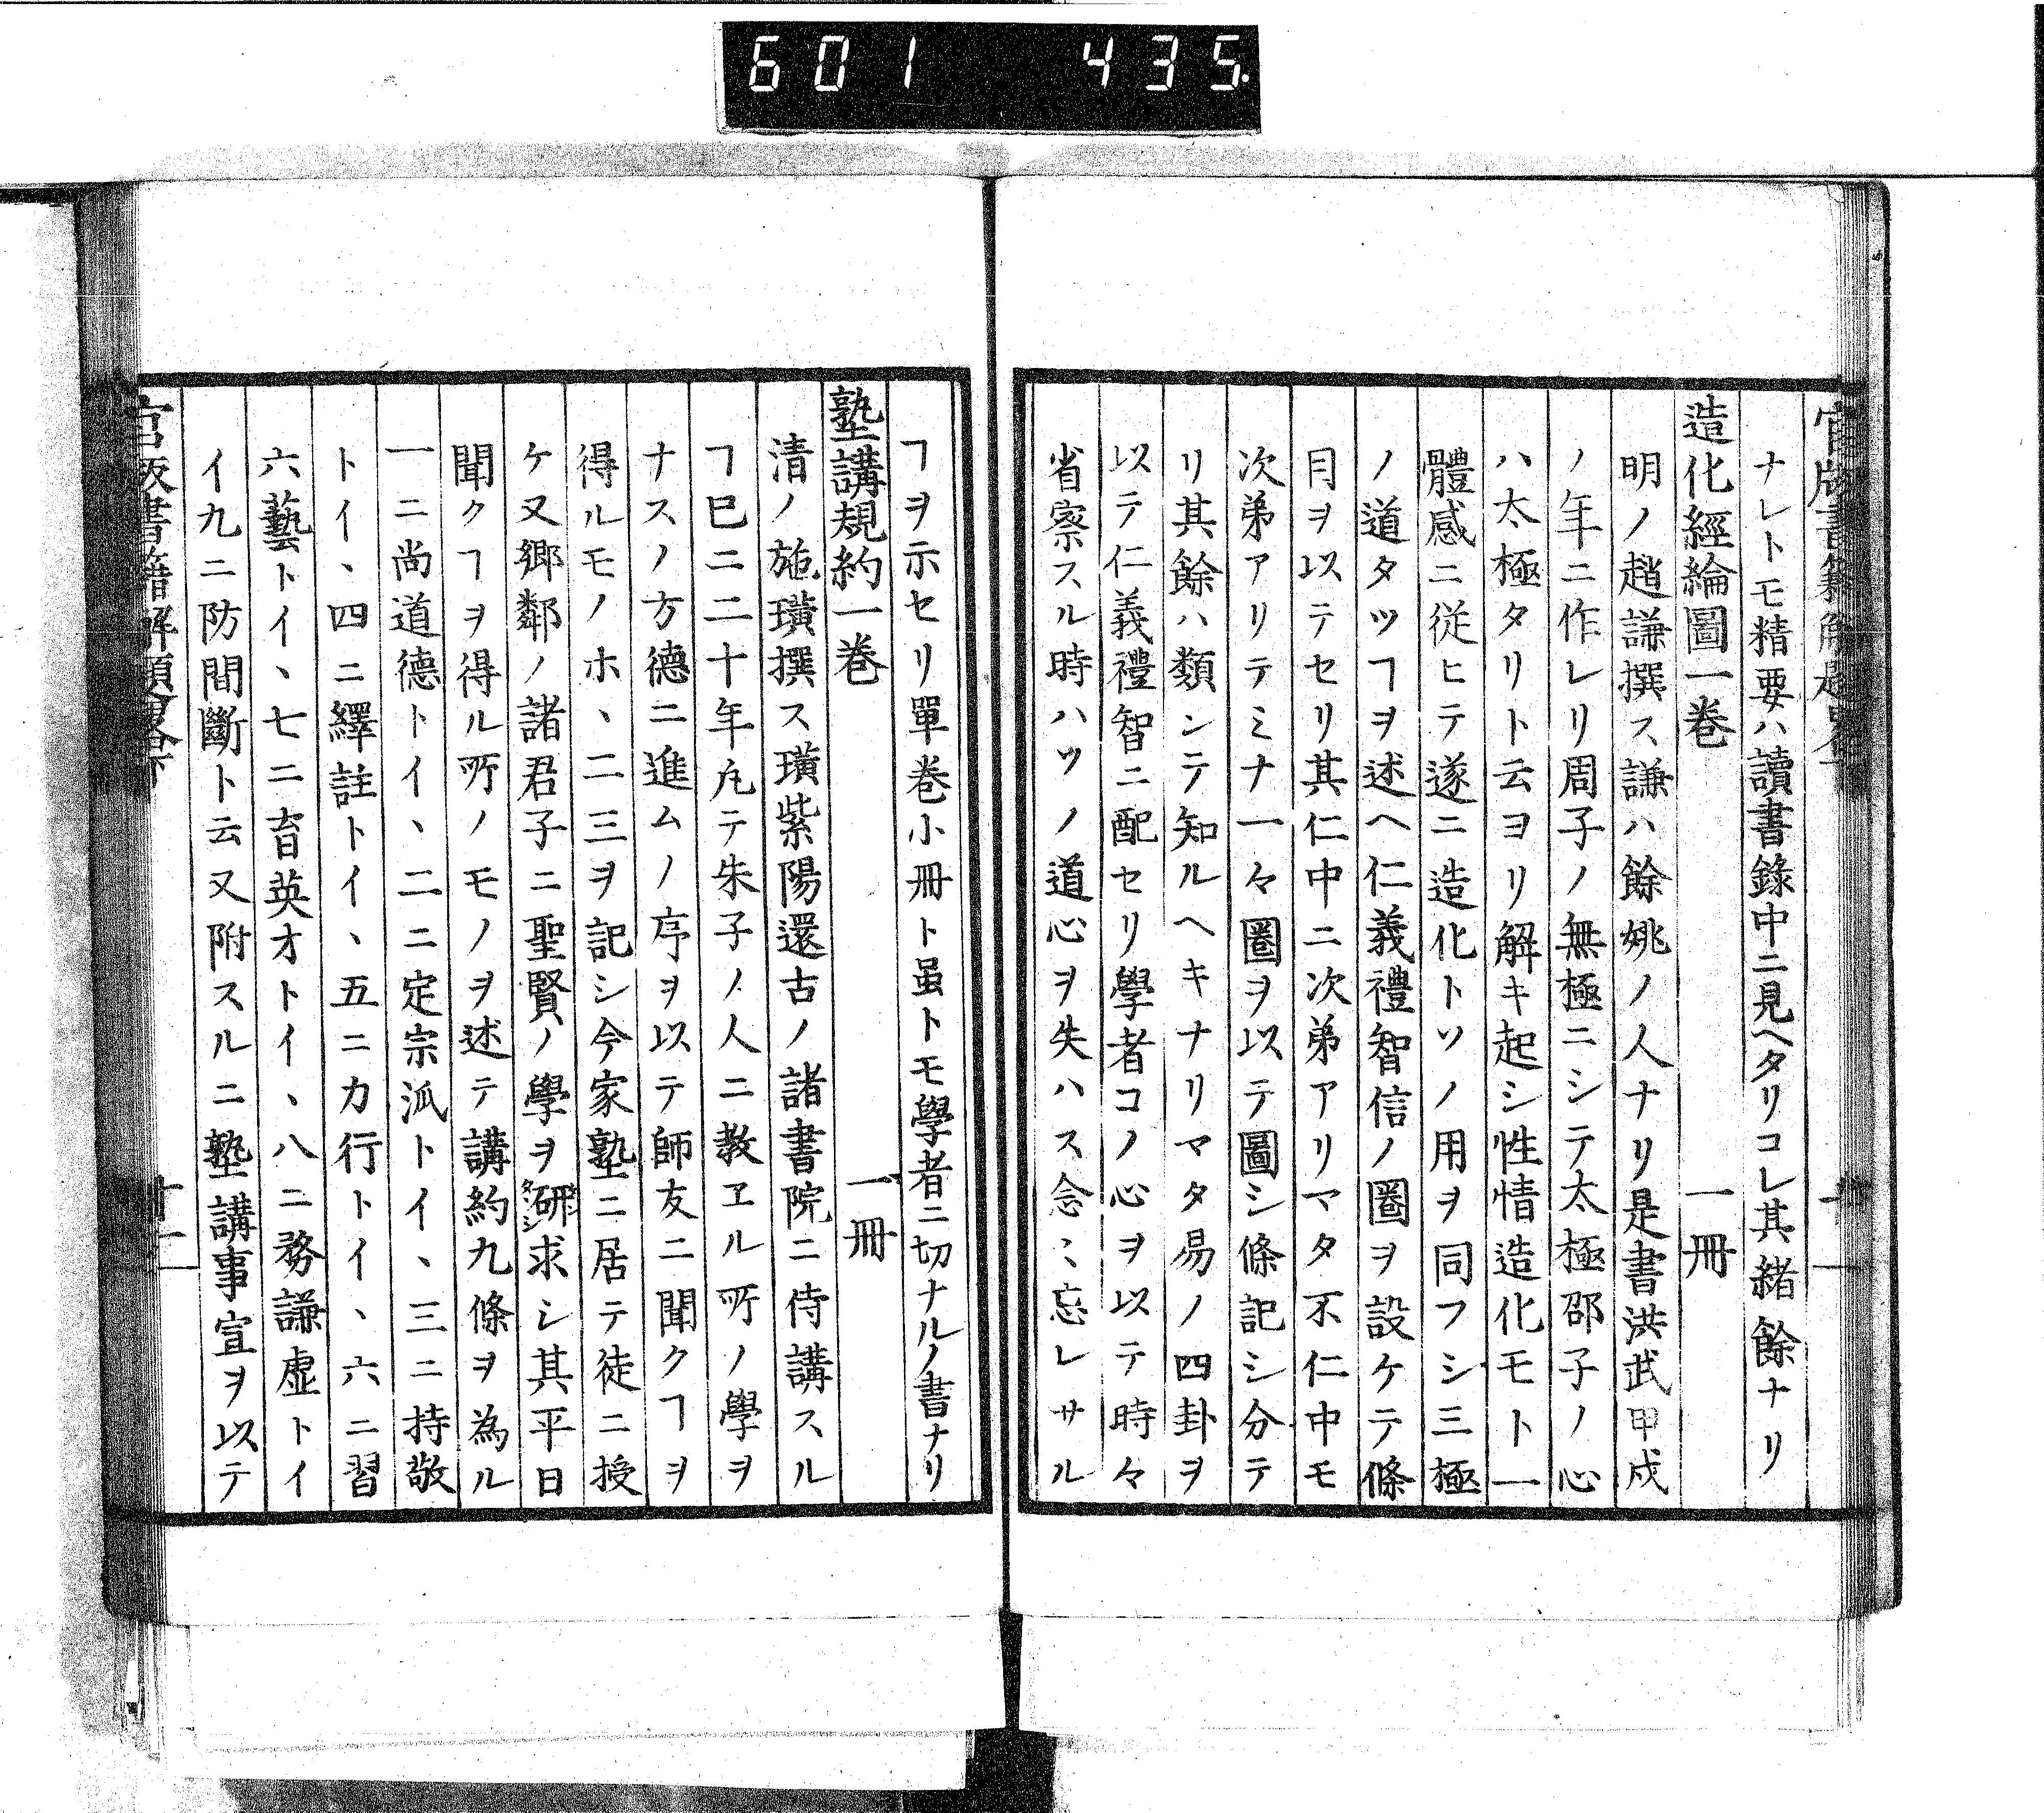 601 435
ナレトモ精要ハ讀書錄中ニ見ヘタリコレ其緒餘ナリ
造化經綸圖一巻 一冊
明ノ趙謙撰ス謙ハ餘姚ノ人ナリ是書洪武甲戍
ノ年ニ作レリ周子ノ無極ニシテ太極邵子ノ心
ハ太極タリト云ヨリ解キ起シ性情造化モト一
體感ニ從ヒテ遂ニ造化トソノ用ヲ同フシ三極
ノ道タツヿヲ述ヘ仁義禮智信ノ圏ヲ設ケテ條
目ヲ以テセリ其仁中ニ次弟アリマタ不仁中モ
次弟アリテミナ一々圏ヲ以テ圖シ條記シ分テ
リ其餘ハ類シテ知ルヘキナリマタ易ノ四卦ヲ
以テ仁義禮智ニ配セリ學者コノ心ヲ以テ時々
省察スル時ハソノ道心ヲ失ハス念〻忘レサル
ヿヲ示セリ單巻小冊ト虽トモ學者ニ切ナルノ書ナリ
塾講規約一巻 一冊
清ノ施璜撰ス璜紫陽還古ノ諸書院ニ侍講スル
ヿ巳ニ二十年凢テ朱子ノ人ニ教ヱル所ノ學ヲ
ナスノ方德ニ進ムノ序ヲ以テ師友ニ聞クヿヲ
得ルモノホヽ二三ヲ記シ今家塾ニ居テ徒ニ授
ケ又鄉鄰ノ諸君子ニ聖賢ノ學ヲ研求シ其平日
聞クヿヲ得ル所ノモノヲ述テ講約九條ヲ為ル
一ニ尚道德トイヽ二ニ定宗派トイヽ三ニ持敬
トイヽ四ニ繹註トイヽ五ニ力行トイヽ六ニ習
六藝トイヽ七ニ育英才トイヽ八ニ務謙虛トイ
イ九ニ防間斷ト云又附スルニ塾講事宜ヲ以テ
官版書籍解題畧下 十一